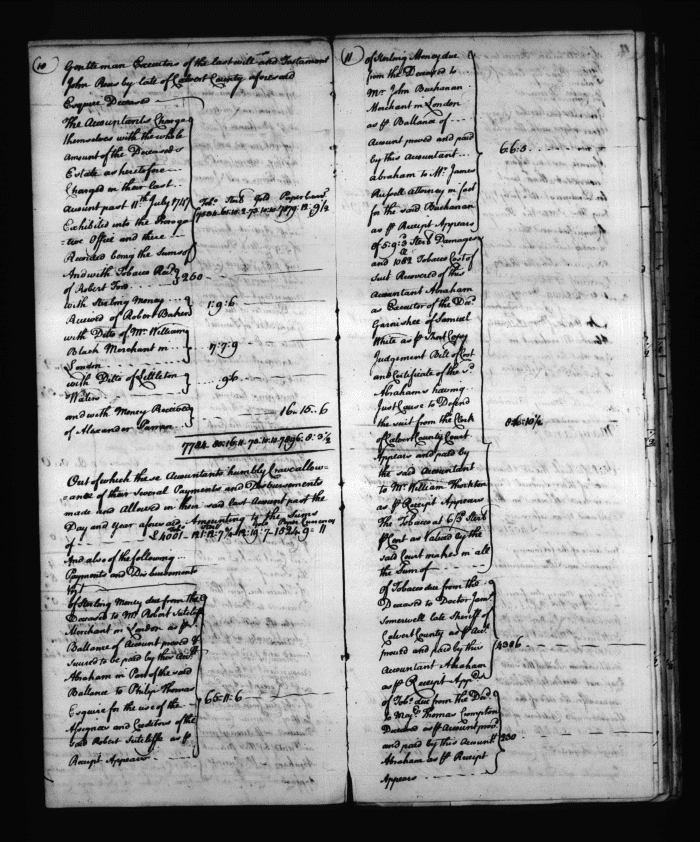 10
Gentleman Executors of the last will and Testament
John Rousby late of Calvert County aforesaid
Esquire Deceased
The Accountants Charge
themselves with the whole
Amount of the Deceaseds
Estate as heretofore
Charged in their last
Account past 11th July 1747
Exhibited into the Preroga
tive Office and there
Recorded being the Sums of
Tobo. Sterl Gold Paper Curr
And with Tobacco Recd.
of Robert Ford
260
with Sterling Money
Received of Robert Baker
1:9:6
with Ditto of Mr. William
Black Merchant in
London
17:7:9
with Ditto of Littleton
Waters
9:6
and with Money Received
of Alexander Parran
16:15:6
Out of which these Accountants humbly Crave allow
-ance of their Several Payments and Disbursements
made and Allowed in their said last Account past the
Day and Year aforesaid Amounting to the Sums
of
And also of the following
Payments and Disbursements
Vizt
Of Sterling Money due from the
Deceased to Mr. Robert Sutcliffe
Merchant in London as pr
Ballance of Account proved &
Secured to be paid by this Acct.
Abraham in Part of the said
Ballance to Philip Thomas
Esquire for the use of the
Assignees and Creditors of the
said Robert Sutcliffe as pr
Receipt Appears
65:11:6
11
of Sterling Money due
from the Deceased to
Mr. John Buchanan
Merchant in London
as pr Ballance of
Account proved and paid
by this Accountant
Abraham to Mr. James
Russell Attorney in fact
for the said Buchanan
as pr Receipt Appears
6:6:3
of 5:9:3 Sterl Damages
and 1082 Tobacco Cost of
Suit Recovered of this
Accountant Abraham
as Executor of the Decd.
Garnishee of Samuel
White as pr Short Copy
Judgement Bill of Cost
and Certificate of the sd.
Abrahams having
Just Cause to Defend
the suit from the Clerk
of Calvert County Court
Appears and paid by
the said Accountant
to Mr. William Thornton
as pr Receipt Appears
The Tobacco at
pr Cent as Valued by the
said Court makes in all
the Sum of
Of Tobacco due from the
Deceased to Doctor Jams.
Somervell late Sheriff
Calvert County as pr Acct.
proved and paid by this
Accountant Abraham
as pr Receipt Appears
4386
of Tobo. due from the Decd.
to Majr. Thomas Crompton
Deceased as pr Account proved
and paid by this Accountt.
Abraham as pr Receipt
Appears